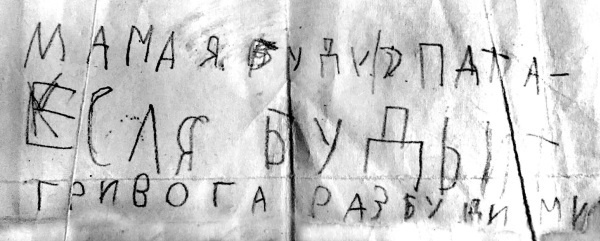 МАМА Я БУДУ СПАТ А-
ЕСЛЯ БУДЫ -
ТРИВОГА РАЗБУДИ МИ